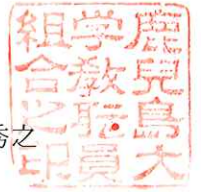 鹿兒島大
学教职員
組合之印
秀之